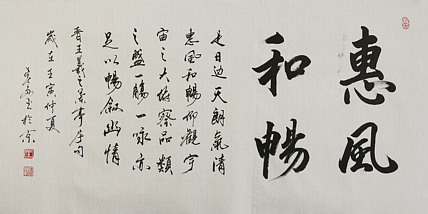 惠风
和畅
是日也天朗氣清
惠風和暢仰觀宇
宙之大俯察品類
之盛一觴一詠亦
足以暢叙幽情
晋王羲之蘭亭序句
歲在壬寅仲夏
於京